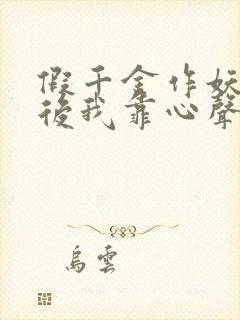 假千金作妖
後我靠心聲
烏雲